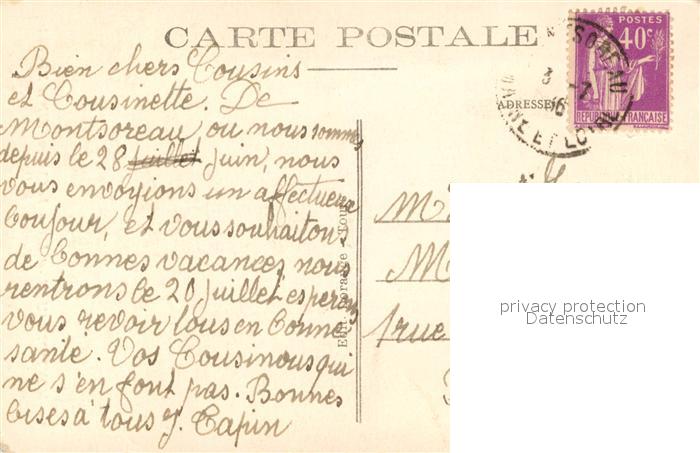 CARTE POSTALE
POSTES
40c
REPUBLIQUE FRANÇAISE
MAINE ET LOIRE
3 -7
36
ADRESSE
Bien chers Cousins
et Cousinette. De
Montsoreau, ou nous sommes
depuis le 28 juillet juin, nous
vous envoyions un affectueux
Conjour, et vous souhaiton
de Connes vacances, nous
rentrons le 20 juillet, esperons
vous revoir tous en Conne
santé. Vos Cousinous qui
ne s'en font pas. Bonnes
Cises à tous J. Capin
M
M
rue
Edit. Tours
privacy protection
Datenschutz